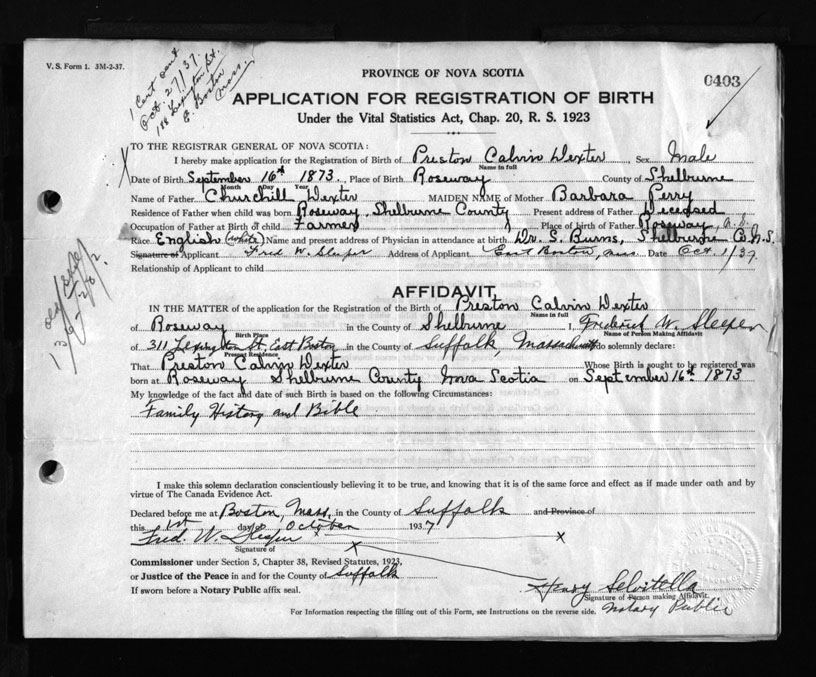 V. S. Form 1. 3M-2-37.
1 Cert sent
Oct. 27/37.
188 Lexington St.
E. Boston
Mass.
PROVINCE OF NOVA SCOTIA
0403
APPLICATION FOR REGISTRATION OF BIRTH
Under the Vital Statistics Act, Chap. 20, R. S. 1923
TO THE REGISTRAR GENERAL OF NOVA SCOTIA:
I hereby make application for the Registration of Birth of Preston Calvin Dexter Sex Male
Name in full
Date of Birth September 16th 1873. Place of Birth Roseway County of Shelburne
Month Day Year
Name of Father Churchill Dexter MAIDEN NAME of Mother Barbara Perry
Residence of Father when child was born Roseway, Shelburne County Present address of Father Deceased
Occupation of Father at Birth of child Farmer Place of birth of Father Roseway, N.S.
Race English (white) Name and present address of Physician in attendance at birth Dr. S. Burns, Shelburne Co. N.S.
Signature of Applicant Fred W. Sleeper Address of Applicant East Boston, Mass. Date Oct. 1/37.
Relationship of Applicant to child
AFFIDAVIT
IN THE MATTER of the application for the Registration of the Birth of Preston Calvin Dexter
Name in full
of Roseway in the County of Shelburne I, Frederick W. Sleeper
Birth Place Name of Person Making Affidavit
of 311 Lexington St East Boston in the County of Suffolk, Massachusetts do solemnly declare:
Present Residence
That Preston Calvin Dexter Whose Birth is sought to be registered was
born at Roseway Shelburne County Nova Scotia on September 16th 1873
My knowledge of the fact and date of such Birth is based on the following Circumstances:
Family History and Bible
I make this solemn declaration conscientiously believing it to be true, and knowing that it is of the same force and effect as if made under oath and by
virtue of The Canada Evidence Act.
Declared before me at Boston, Mass. in the County of Suffolk and Province of
this 1st day of October 1937
Fred. W. Sleeper
Signature of
Commissioner under Section 5, Chapter 38, Revised Statutes, 1923,
or Justice of the Peace in and for the County of Suffolk
If sworn before a Notary Public affix seal.
Henry Selvitella
Signature of Person making Affidavit.
Notary Public
For Information respecting the filling out of this Form, see Instructions on the reverse side.